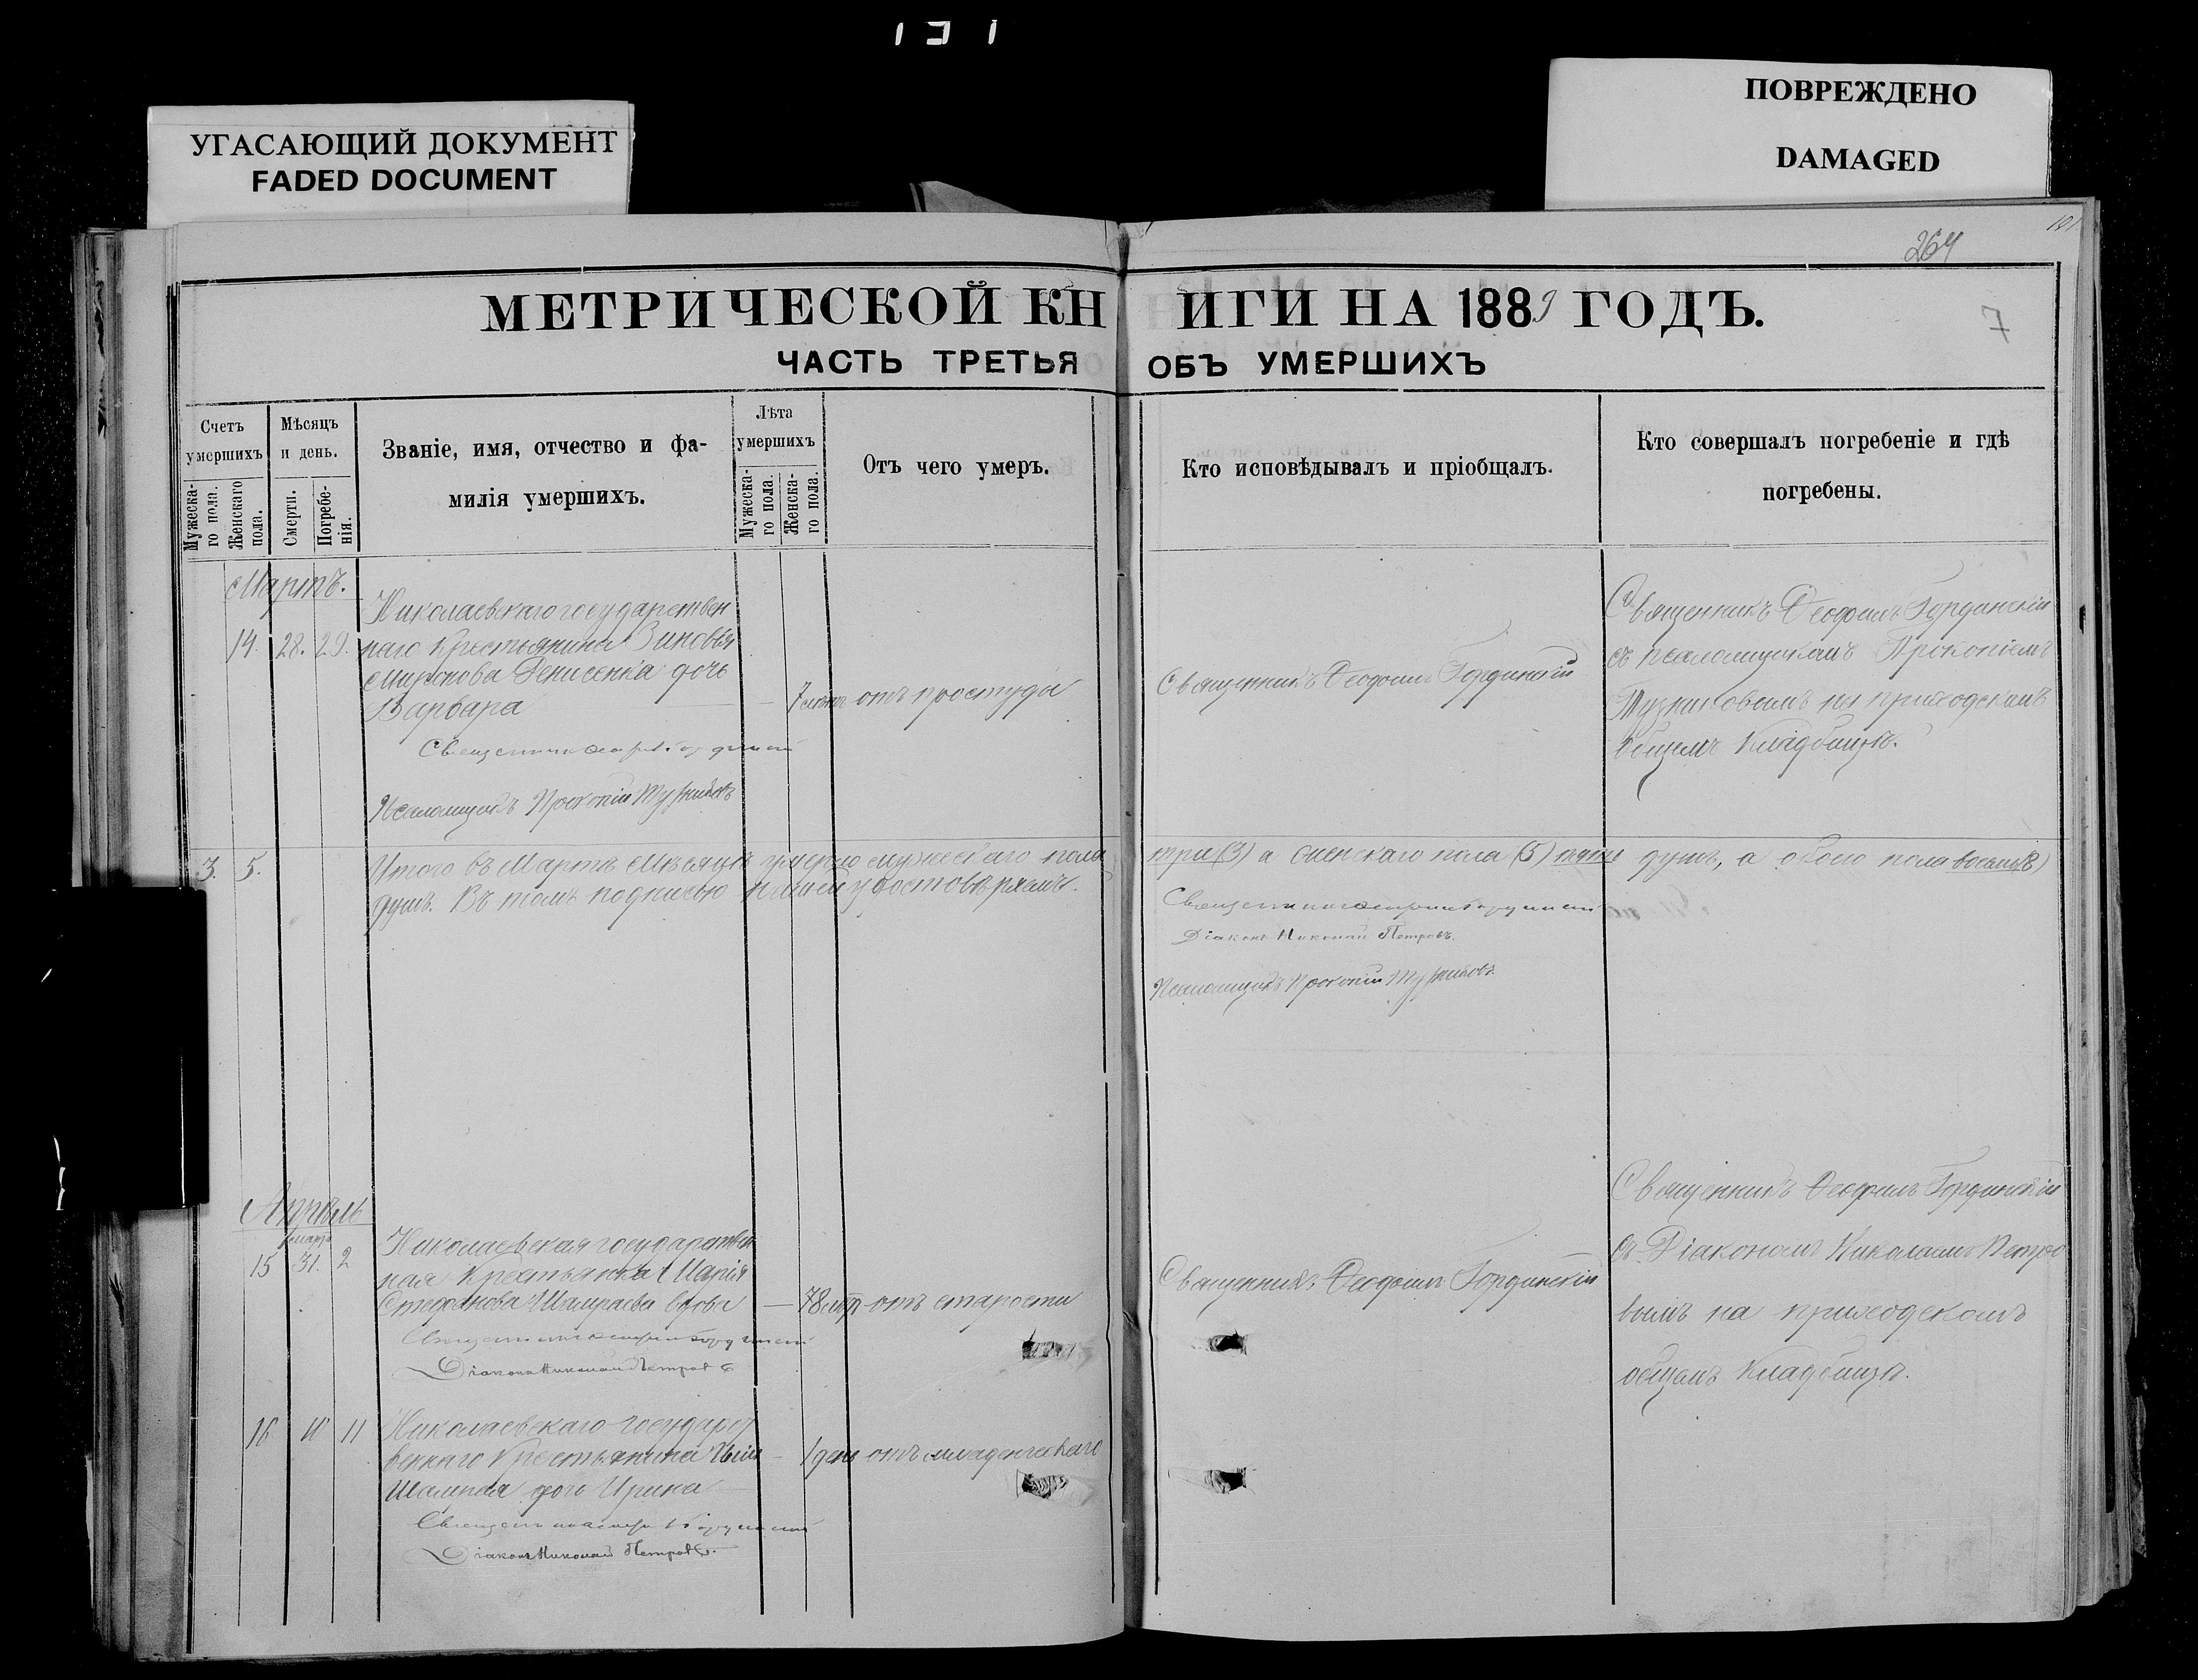 131
УГАСАЮЩИЙ ДОКУМЕНТ
FADED DOCUMENT
ПОВРЕЖДЕНО
DAMAGED
264
МЕТРИЧЕСКОЙ КНИГИ НА 1889 ГОДЪ.
7
ЧАСТЬ ТРЕТЬЯ ОБЪ УМЕРШИХЪ
Счетъ умершихъ
Мужеска-го пола.
Женскаго пола.
Мѣсяцъ и день.
Смерти.
Погребе-нія.
Званіе, имя, отчество и фа-
милія умершихъ.
Лѣта умершихъ
Мужеска-го пола.
Женска-го пола.
Отъ чего умеръ.
Кто исповѣдывалъ и пріобщалъ.
Кто совершалъ погребеніе и гдѣ
погребены.
Мартъ.
14. 28. 29.
Николаевскаго государствен
наго крестьянина Зиновья
Миронова Денисенка дочь
Варвара
отъ простуды
Священникъ Ѳеофилъ Гординскій
Священникъ Ѳеофилъ Гординскій
съ псаломщикомъ Прокопіемъ
на приходскомъ
общемъ кладбищѣ.
Псаломщикъ Прокопій
3. 5.
Итого въ Мартѣ мѣсяцѣ умерло мужескаго пола три (3) а женскаго пола (5) пять душъ, а обоего пола восемь (8)
душъ. Въ томъ подписью нашей удостовѣряемъ.
Священникъ Ѳеофилъ Гординскій
Діаконъ Николай Петровъ.
Псаломщикъ Прокопій
Апрѣль
15 марта 31. 2
Николаевская государствен
ная крестьянка Марія
Стефанова вдова
78 лѣтъ отъ старости
Священникъ Ѳеофилъ Гординскій
Священникъ Ѳеофилъ Гординскій
съ Діакономъ Николаемъ Петро
вымъ на приходскомъ
общемъ кладбищѣ.
Священникъ Ѳеофилъ Гординскій
Діаконъ Николай Петровъ
16 10 11
Николаевскаго государст
веннаго крестьянина
дочь Ирина
1 день отъ младенческаго
Священникъ Ѳеофилъ Гординскій
Діаконъ Николай Петровъ.